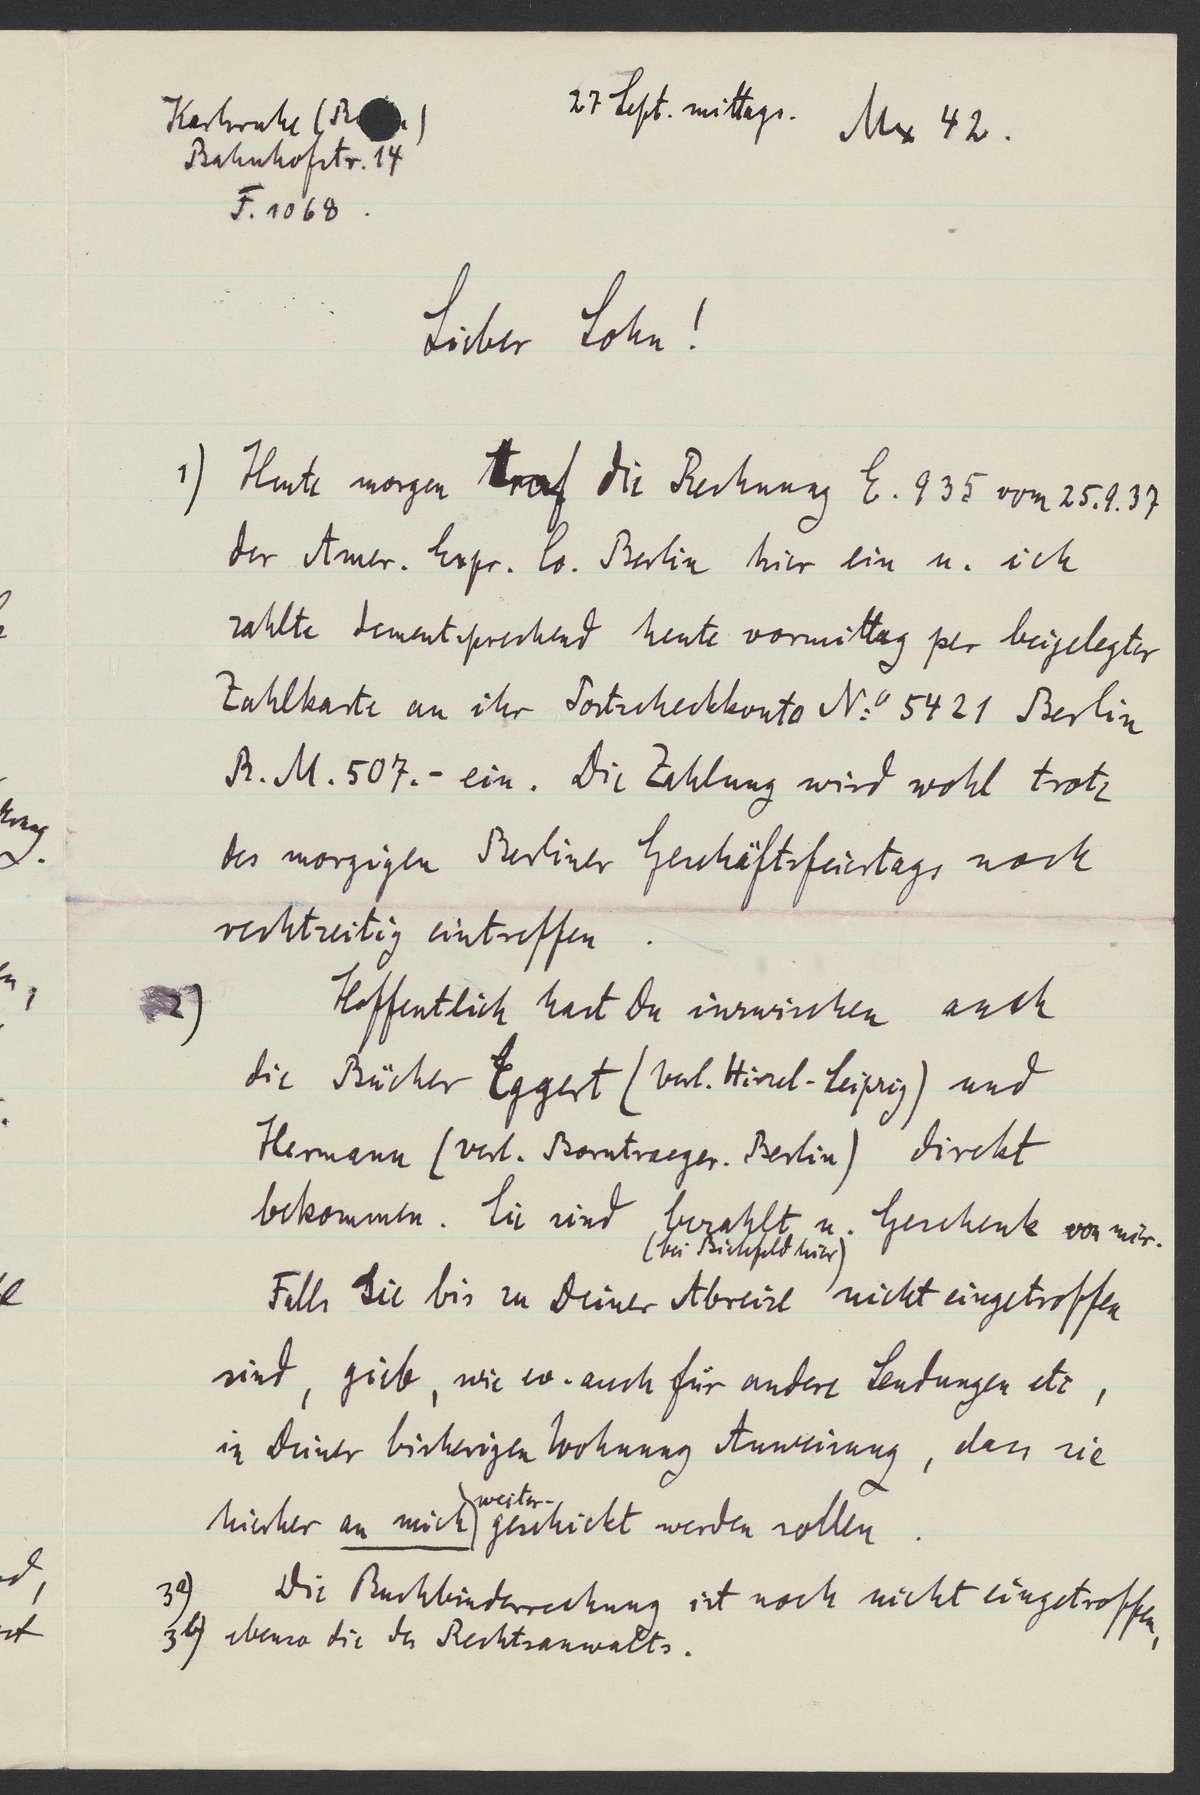 Karlsruhe (B
27 Sept. mittags.
Max 42.
Bahnhofstr. 14
F. 1068.
Lieber Sohn!
1) Heute morgen traf die Rechnung E. 935 vom 25.9.37
der Amer. Expr. Co. Berlin hier ein u. ich
zahlte dementsprechend heute vormittag per beigelegter
Zahlkarte an ihr Postscheckkonto No 5421 Berlin
R.M. 507.- ein. Die Zahlung wird wohl trotz
des morgigen Berliner Geschäftsfeiertags noch
rechtzeitig eintreffen.
2) Hoffentlich hast Du inzwischen auch
die Bücher Eggert (Verl. Hirzel-Leipzig) und
Hermann (Verl. Borntraeger. Berlin) direkt
bekommen. Sie sind bezahlt u. Geschenk von mir.
(bei Bielefeld hier)
Falls Sie bis zu Deiner Abreise nicht eingetroffen
sind, gieb, wie ev. auch für andere Sendungen etc,
in Deiner bisherigen Wohnung Anweisung, dass sie
hierher an mich weiter-
geschickt werden sollen.
3a) Die Buchbinderrechnung ist noch nicht eingetroffen,
3b) ebenso die des Rechtsanwalts.